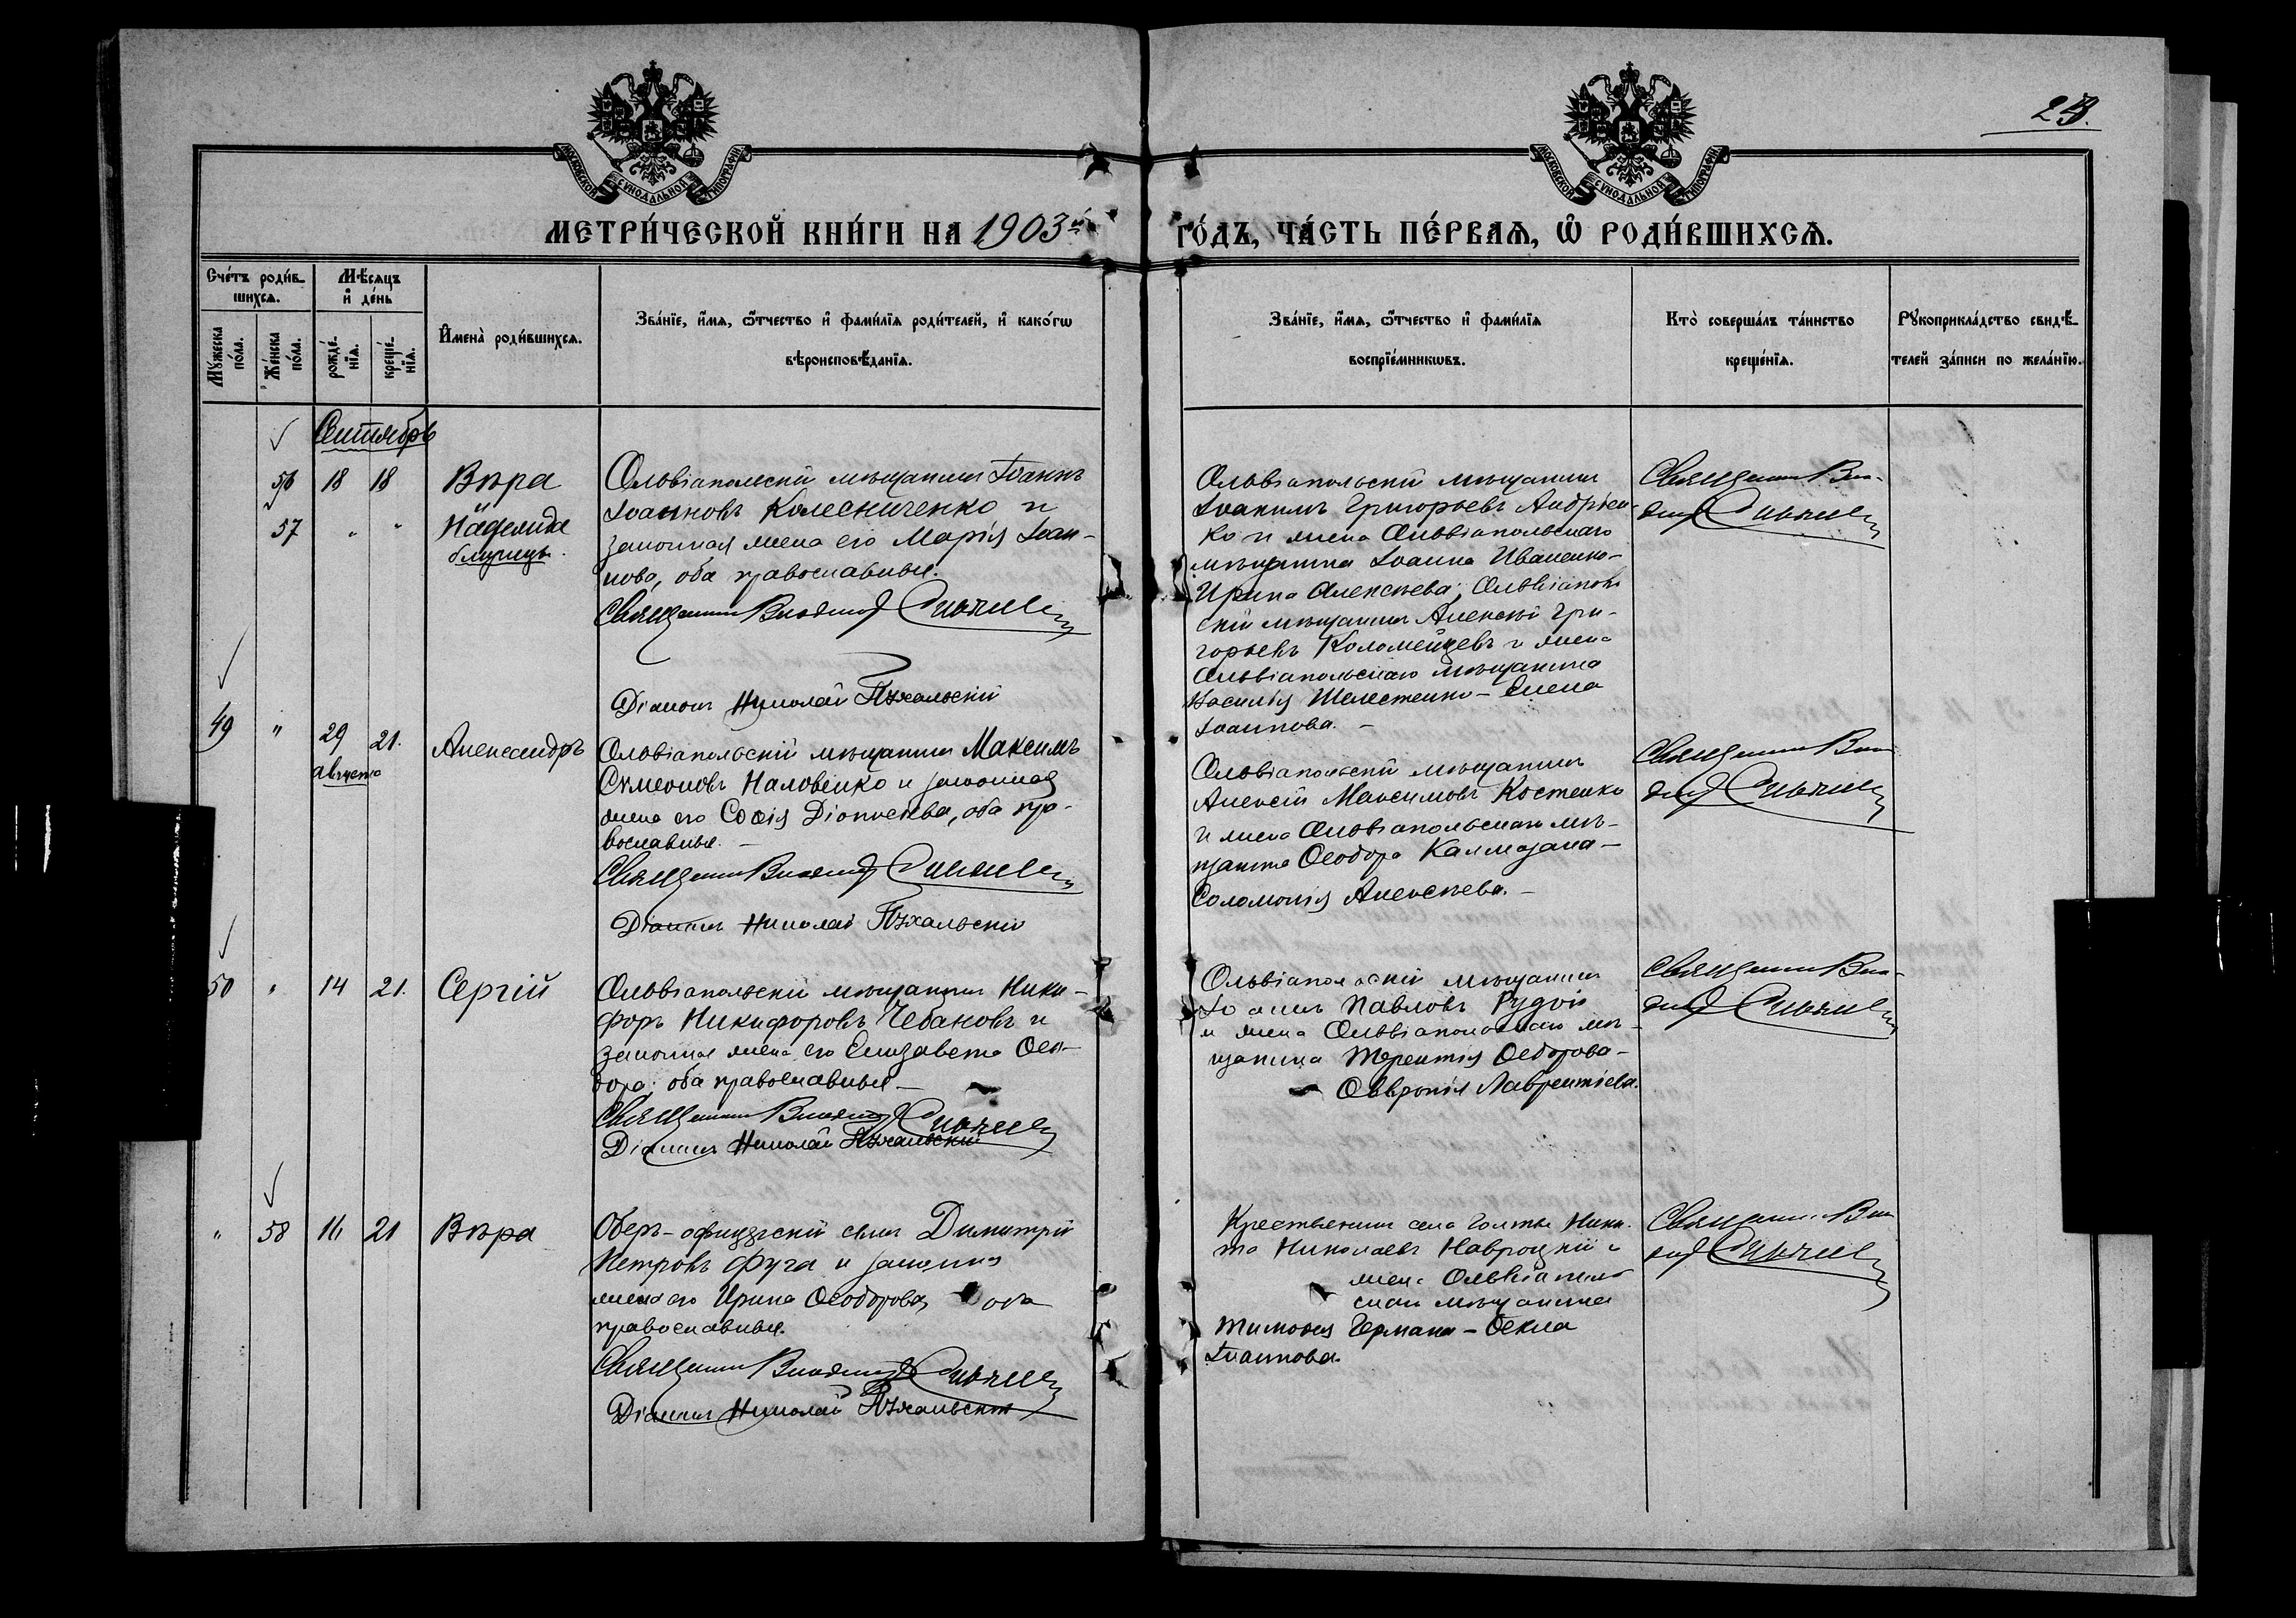 23.
МОСКОВСКОЙ СУНОДАЛЬНОЙ ТИПОГРАФІИ
МОСКОВСКОЙ СУНОДАЛЬНОЙ ТИПОГРАФІИ
МЕТРИ́ЧЕСКОЙ КНИ́ГИ НА 1903й
ГО́ДЪ, ЧА́СТЬ ПЕ́РВАѦ, Ѽ РОДИ́ВШИХСѦ.
Сче́тъ роди́в-
шихсѧ.
Мѣ́сяцъ
и҆ де́нь
Мꙋ́жеска
по́ла.
Же́нска
по́ла.
рожде́-
нїѧ.
креще́-
нїѧ.
И҆мена̀ роди́вшихсѧ.
Зва́нїе, и҆́мѧ, ѻ҆́тчество и҆ фами́лїѧ роди́телей, и҆ како́гѡ
вѣроисповѣ́данїѧ.
Зва́нїе, и҆́мѧ, ѻ҆́тчество и҆ фами́лїѧ
воспрїе́мникѡвъ.
Кто̀ соверша́лъ та́инство
креще́нїѧ.
Рꙋкоприкла́дство свидѣ́-
телей за́писи по жела́нїю.
Сентябрь
56 18 18 Вѣра
57 " " Надежда
близнецы.
Ольвіапольскій мѣщанинъ Іоаннъ
Іоанновъ Колесниченко и
законная жена его Марія Іоан-
нова, оба православные.
Священникъ Владимір
Діаконъ Николай Пухальскій
Ольвіапольскій мѣщанинъ
Іоакимъ Григорьевъ Андріен-
ко и жена Ольвіапольскаго
мѣщанина Іоанна Иваненко-
Ирина Алексѣева; Ольвіаполь
скій мѣщанинъ Алексѣй Гри-
горьевъ Коломейцевъ и жена
Ольвіапольскаго мѣщанина
Василія Шелестенко - Елена
Іоаннова. -
Священникъ Вла-
димір
49 " 29 21. Александръ
августа
Ольвіапольскій мѣщанинъ Максимъ
Сѵмеоновъ Наловенко и законная
жена его Софія Діонисіева, оба пра-
вославные. -
Священникъ Владимір
Діаконъ Николай Пухальскій
Ольвіапольскій мѣщанинъ
Алексѣй Максимовъ Костенко
и жена Ольвіапольскаго мѣ-
щанина Ѳеодора Калмазана -
Соломонія Алексѣева. -
Священникъ Вла
димір
50 " 14 21. Сергій
Ольвіапольскій мѣщанинъ Ники-
форъ Никифоровъ Чебановъ и
законная жена его Елизавета Ѳео-
дора, оба православные -
Священникъ Владимір
Діаконъ Николай Пухальскій
Ольвіапольскій мѣщанинъ
Іоаннъ Павловъ
и жена Ольвіапольскаго мѣ-
щанина Терентія Ѳедорова -
Ѳевронія Лаврентіева.
Священникъ Вла-
димір
" 58 16 21 Вѣра
Оберъ-офицерскій сынъ Димитрій
Петровъ Фуга и законная
жена его Ирина Ѳеодорова, оба
православные.
Священникъ Владимір
Діаконъ Николай Пухальскій
Крестьянинъ села Голты Ники-
та Николаевъ Навроцкій и
жена Ольвіаполь
скаго мѣщанина
Тимоѳея Германа - Ѳекла
Іоаннова.
Священникъ Вла
димір